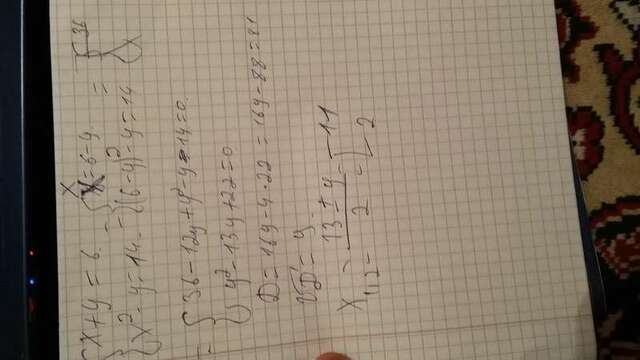 {x+y=6. - {x=6-y =
{x²-y=14. - {(6-y)²-y=14
= {36-12y+y²-y-14=0.
{y²-13y+22=0
D=169-4·22=169-88=81
√D=9
x₁,₂=(13±9)/2=[11
[2